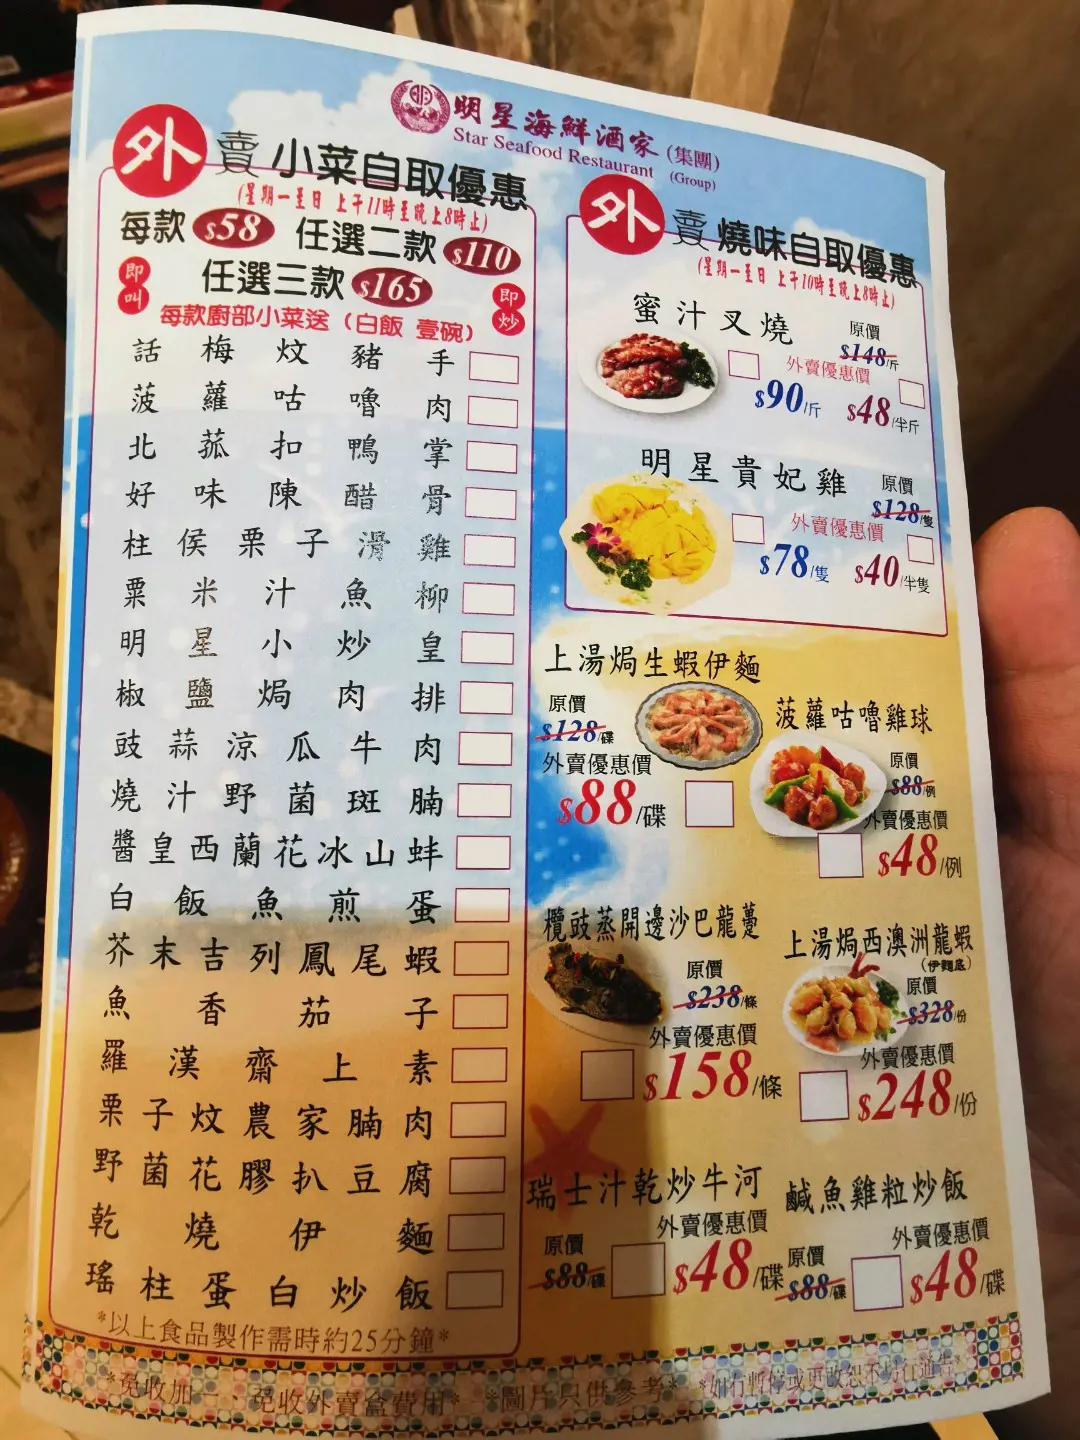 明星海鮮酒家(集團)
Star Seafood Restaurant (Group)
外賣小菜自取優惠
(星期一至日 上午11時至晚上8時止)
每款 $58 任選二款 $110
任選三款 $165
即叫
即炒
每款廚部小菜送(白飯 壹碗)
話梅炆豬手
菠蘿咕嚕肉
北菰扣鴨掌
好味陳醋骨
柱侯栗子滑雞
粟米汁魚柳
明星小炒皇
椒鹽焗肉排
豉蒜涼瓜牛肉
燒汁野菌斑腩
醬皇西蘭花冰山蚌
白飯魚煎蛋
芥末吉列鳳尾蝦
魚香茄子
羅漢齋上素
栗子炆農家腩肉
野菌花膠扒豆腐
乾燒伊麵
瑤柱蛋白炒飯
*以上食品製作需時約25分鐘*
外賣燒味自取優惠
(星期一至日 上午10時至晚上8時止)
蜜汁叉燒
原價
$148/斤
外賣優惠價
$90/斤 $48/半斤
明星貴妃雞
原價
$128/隻
外賣優惠價
$78/隻 $40/半隻
上湯焗生蝦伊麵
原價
$128/碟
外賣優惠價
$88/碟
菠蘿咕嚕雞球
原價
$88/例
外賣優惠價
$48/例
欖豉蒸開邊沙巴龍躉
原價
$238/條
外賣優惠價
$158/條
上湯焗西澳洲龍蝦
(伊麵底)
原價
$328/份
外賣優惠價
$248/份
瑞士汁乾炒牛河
外賣優惠價
原價
$88/碟
$48/碟
鹹魚雞粒炒飯
外賣優惠價
原價
$88/碟
$48/碟
*免收加一 免收外賣盒費用* *圖片只供參考* *如有暫停或更改恕不另行通告*